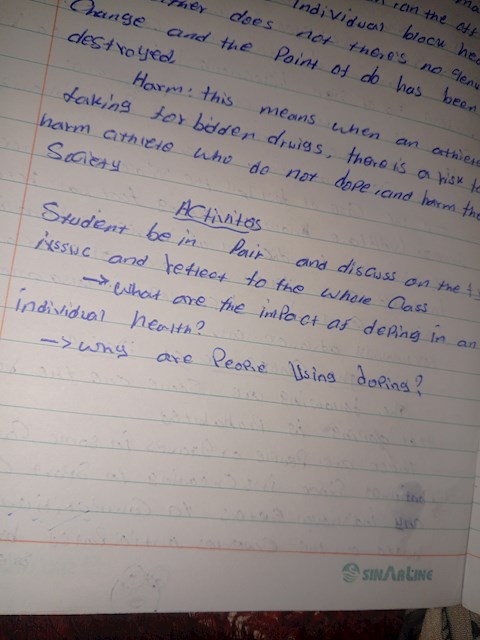 individual
does not there's no
Change and the Point of do has been
destroyed
Harm: this means when an athlete
taking forbidden druigs, there is a risk to
harm athlete who do not dope, and harm the
Society
ACtivites
Student be in Pair and discuss on the
issue and reflect to the whole Class
→ what are the imPact of doping in an
individual health?
→ why are People Using doping?
SINARLINE